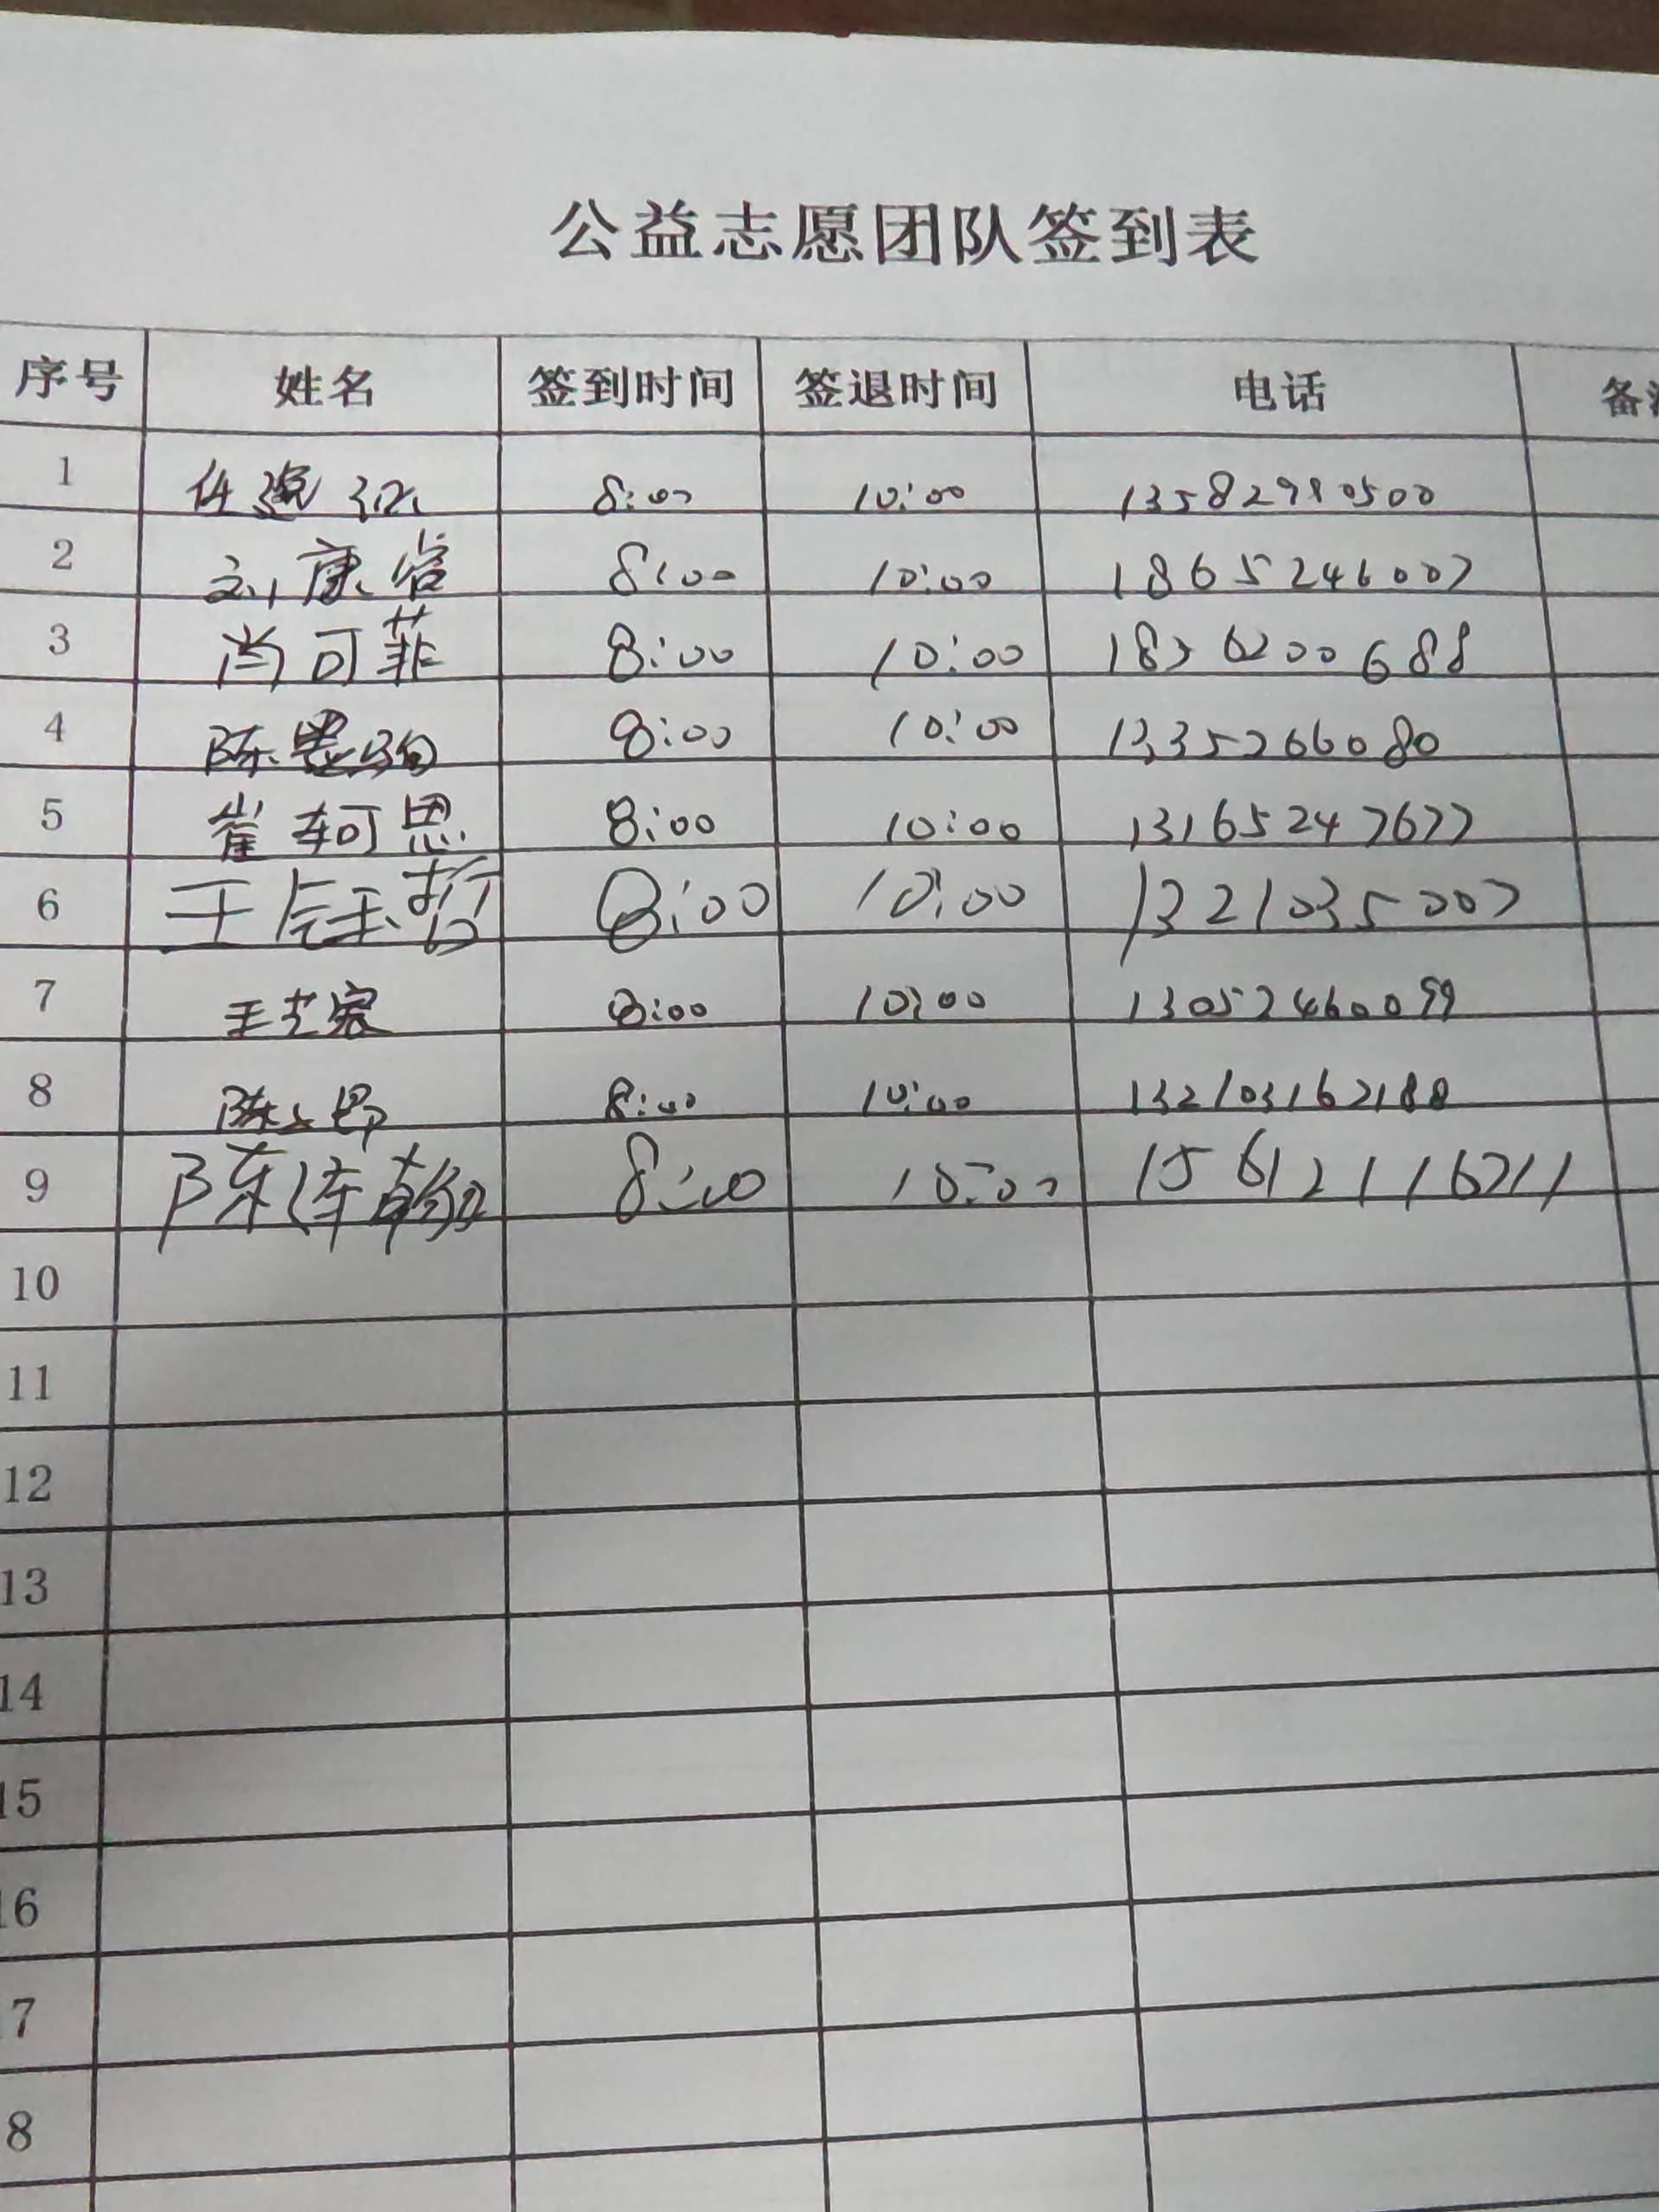 公益志愿团队签到表
序号 姓名 签到时间 签退时间 电话 备
1 任 8:00 10:00 13582980500
2 刘康 8:00 10:00 1865246007
3 尚可菲 8:00 10:00 1876200688
4 陈思 8:00 10:00 1335266080
5 崔轲思 8:00 10:00 13165247677
6 王钰哲 8:00 10:00 13210350007
7 王艺宸 8:00 10:00 13052460099
8 陈 8:00 10:00 132103162188
9 陈泽翰 8:00 10:00 15612116711
10
11
12
13
14
15
16
7
8